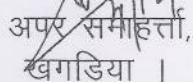 अपर समाहर्त्ता,
खगडिया ।